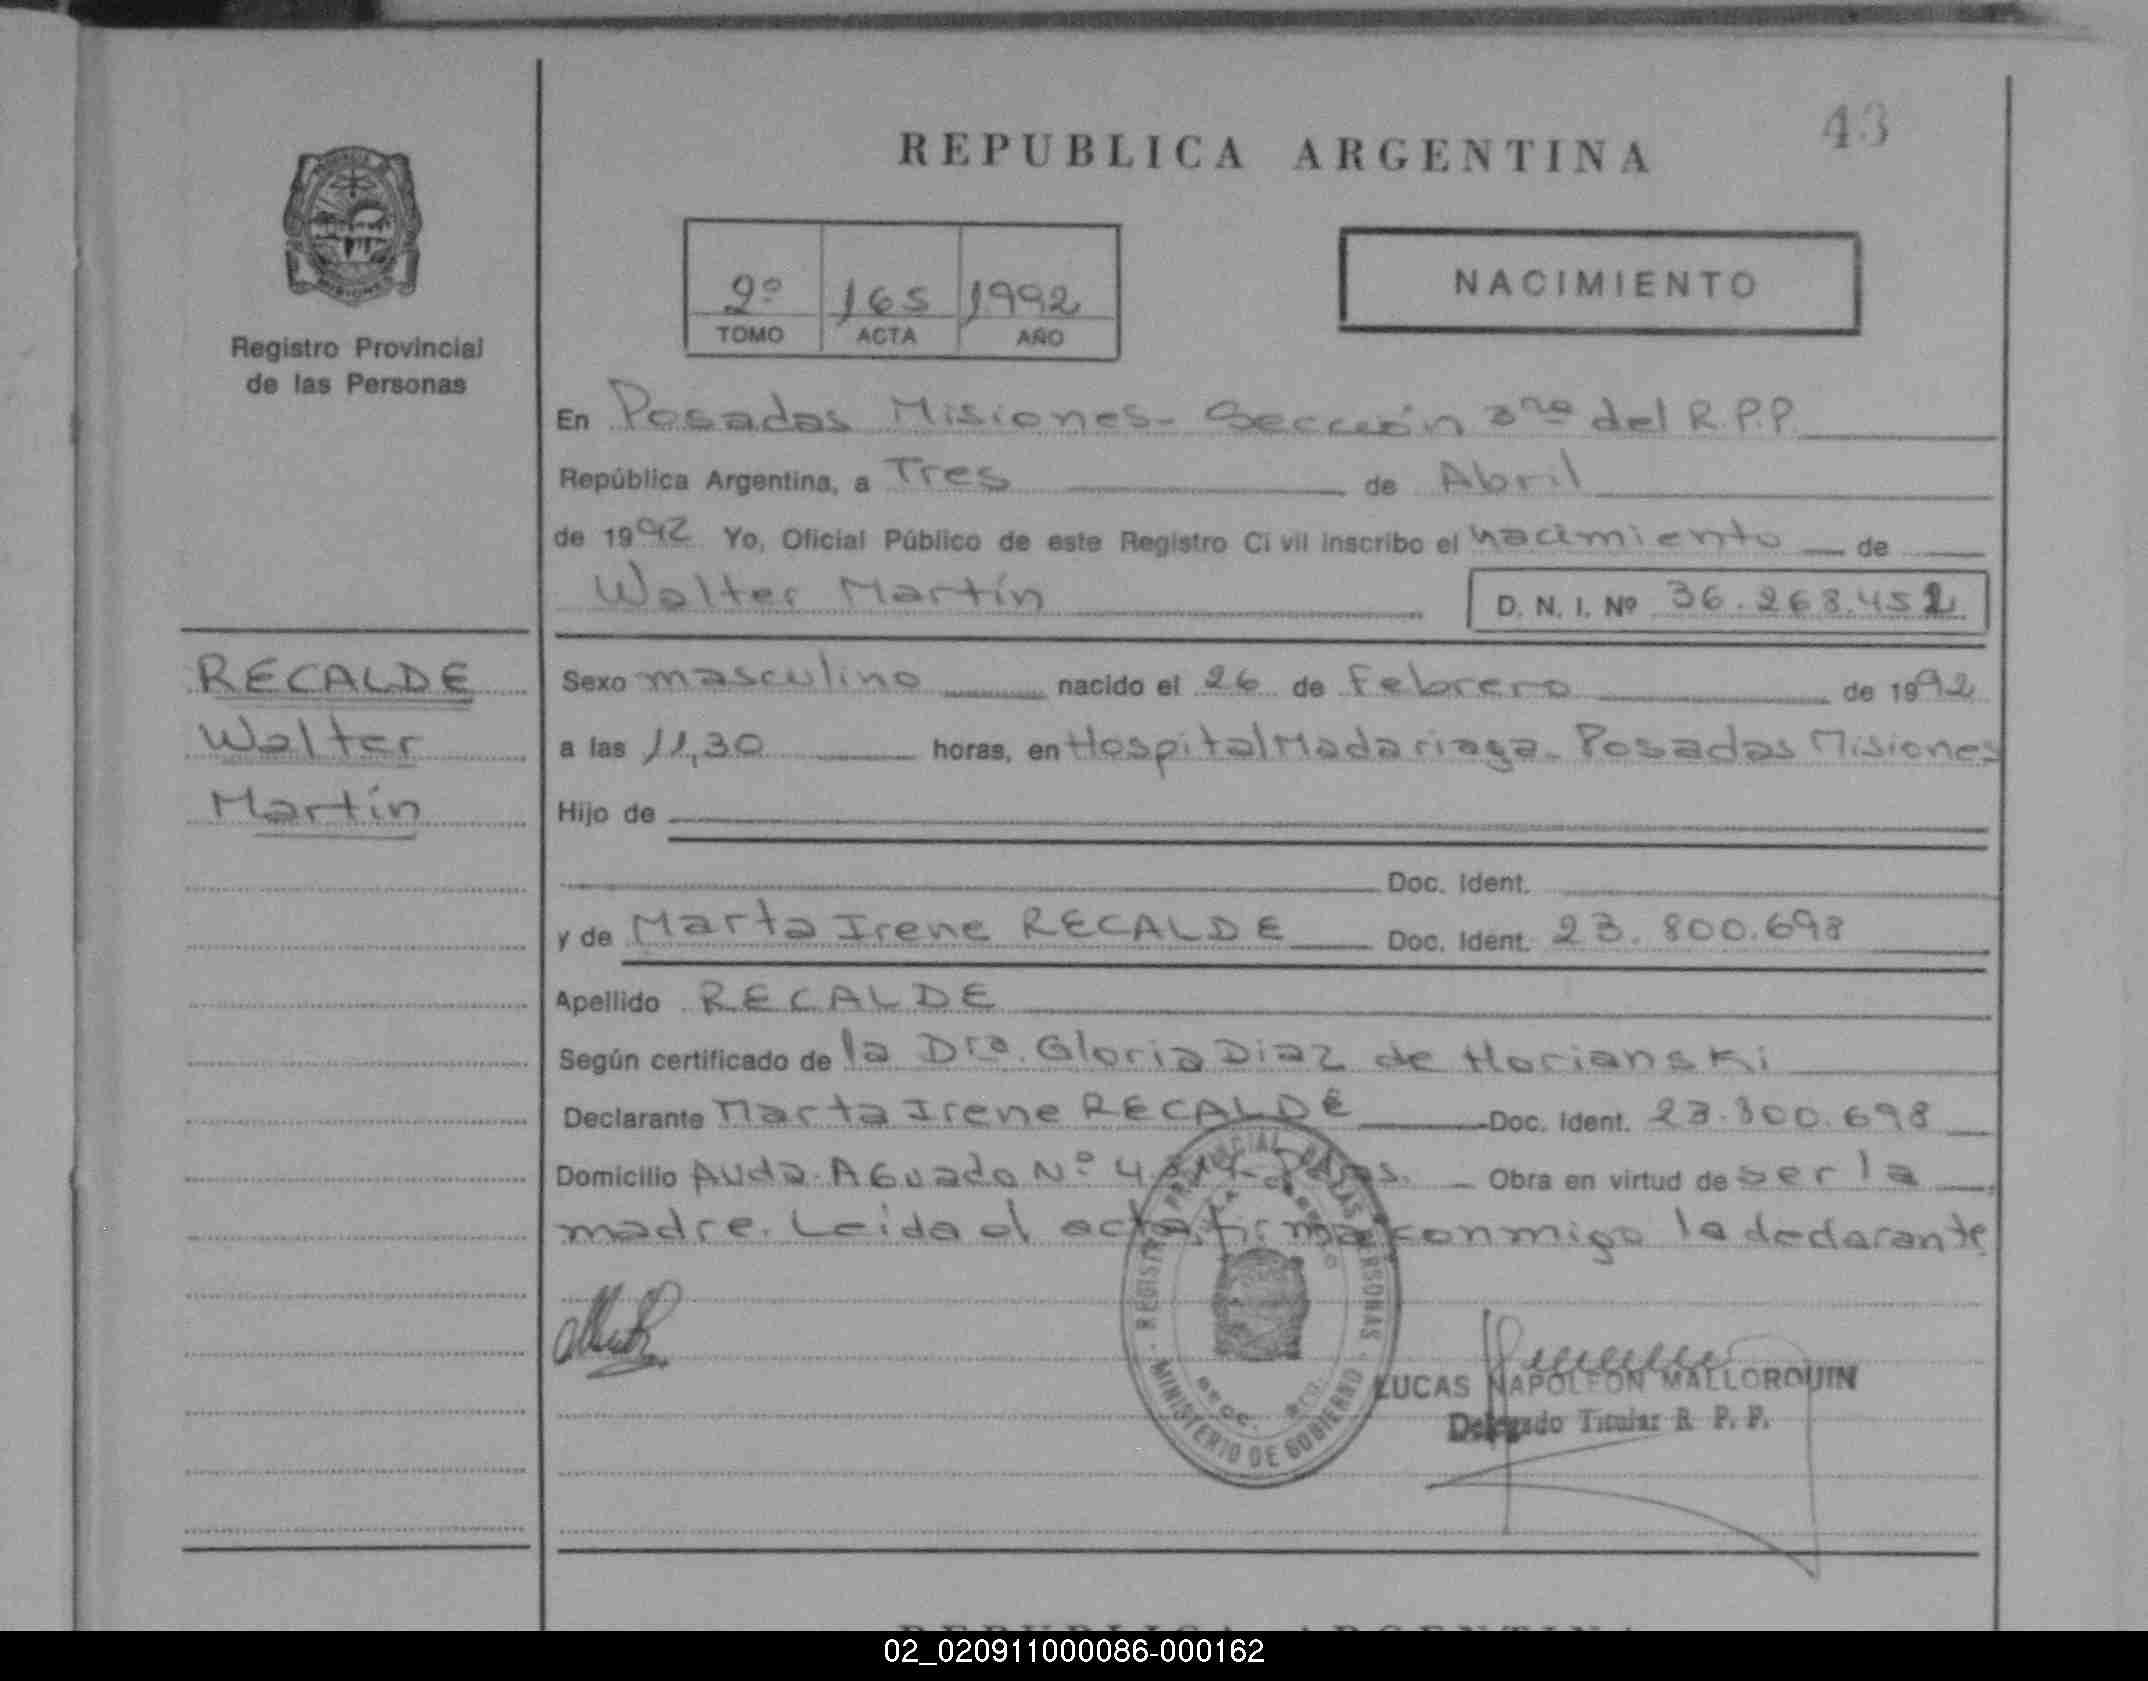 43
REPUBLICA ARGENTINA
2º 165 1992
TOMO ACTA AÑO
NACIMIENTO
Registro Provincial
de las Personas
En Posadas Misiones - Sección 3ra del R.P.P.
República Argentina, a Tres de Abril
de 1992 Yo, Oficial Público de este Registro Civil inscribo el nacimiento de
Walter Martín D. N. I. Nº 36.268.452
RECALDE
Walter
Martín
Sexo masculino nacido el 26 de Febrero de 1992
a las 11,30 horas, en Hospital Madariaga - Posadas Misiones
Hijo de
Doc. Ident.
y de Marta Irene RECALDE Doc. Ident. 23.800.698
Apellido RECALDE
Según certificado de la Dra. Gloria Diaz de Horianski
Declarante Marta Irene RECALDE Doc. Ident. 23.800.698
Domicilio Avda. Aguado Nº Obra en virtud de ser la
madre. Leida el acta, firma conmigo la declarante
REGISTRO PROVINCIAL DE LAS PERSONAS
MINISTERIO DE GOBIERNO
LUCAS NAPOLEON MALLORQUIN
Delegado Titular R. P. P.
REPUBLICA ARGENTINA
02_020911000086-000162